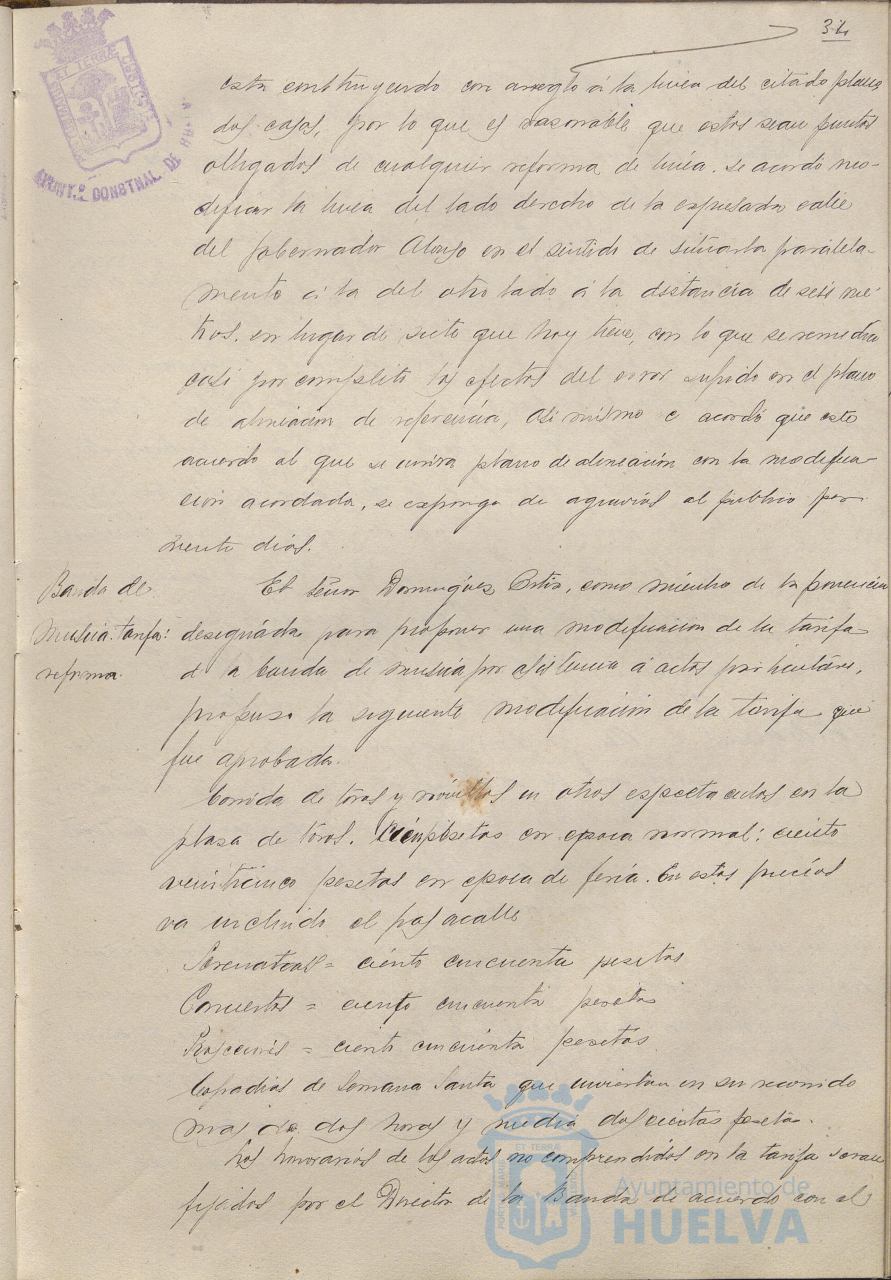 34
esta contruyendo con arreglo á la linea del citado plano
dos casas, por lo que es rasonable que estos sean puntos
obligados de cualquier reforma de linea. se acordó mo-
dificar la linea del lado derecho de la expresada calle
del Gobernador Alonso en el sentido de situarla paralela-
mente á la del otro lado á la distancia de seis me-
tros, en lugar de siete que hoy tiene, con lo que se remedia
casi por completo los efectos del error sufrido en el plano
de alineación de referencia, asi mismo se acordó que este
acuerdo al que se unira plano de alineación con la modifica-
ción acordada, se exponga de agravios al publico por
veinte dias.
Banda de
Musica. tarifa:
reforma.
El señor Dominguez Ortiz, como miembro de la ponencia
designada para proponer una modificacion de la tarifa
de la banda de musica por asistencia á actos particulares,
propuso la siguiente modificación de la tarifa que
fue aprobada.
Corrida de toros y novillos u otros espectaculos en la
plaza de toros. Cien pesetas en epoca normal: ciento
veinticinco pesetas en epoca de feria. En estos precios
va incluido el pasacalle
Serenatas = ciento cincuenta pesetas
Conciertos = ciento cincuenta pesetas
Procesiones = ciento cincuenta pesetas
Cofradias de Semana Santa que inviertan en su recorrido
mas de dos horas y media doscientas pesetas.
Los honorarios de los actos no comprendidos en la tarifa seran
fijados por el Director de la Banda de acuerdo con el
AYUNT.º CONSTNAL. DE
ET TERRÆ
PORTUS MARIS
ET TERRÆ
CUSTODIA
Ayuntamiento de
HUELVA